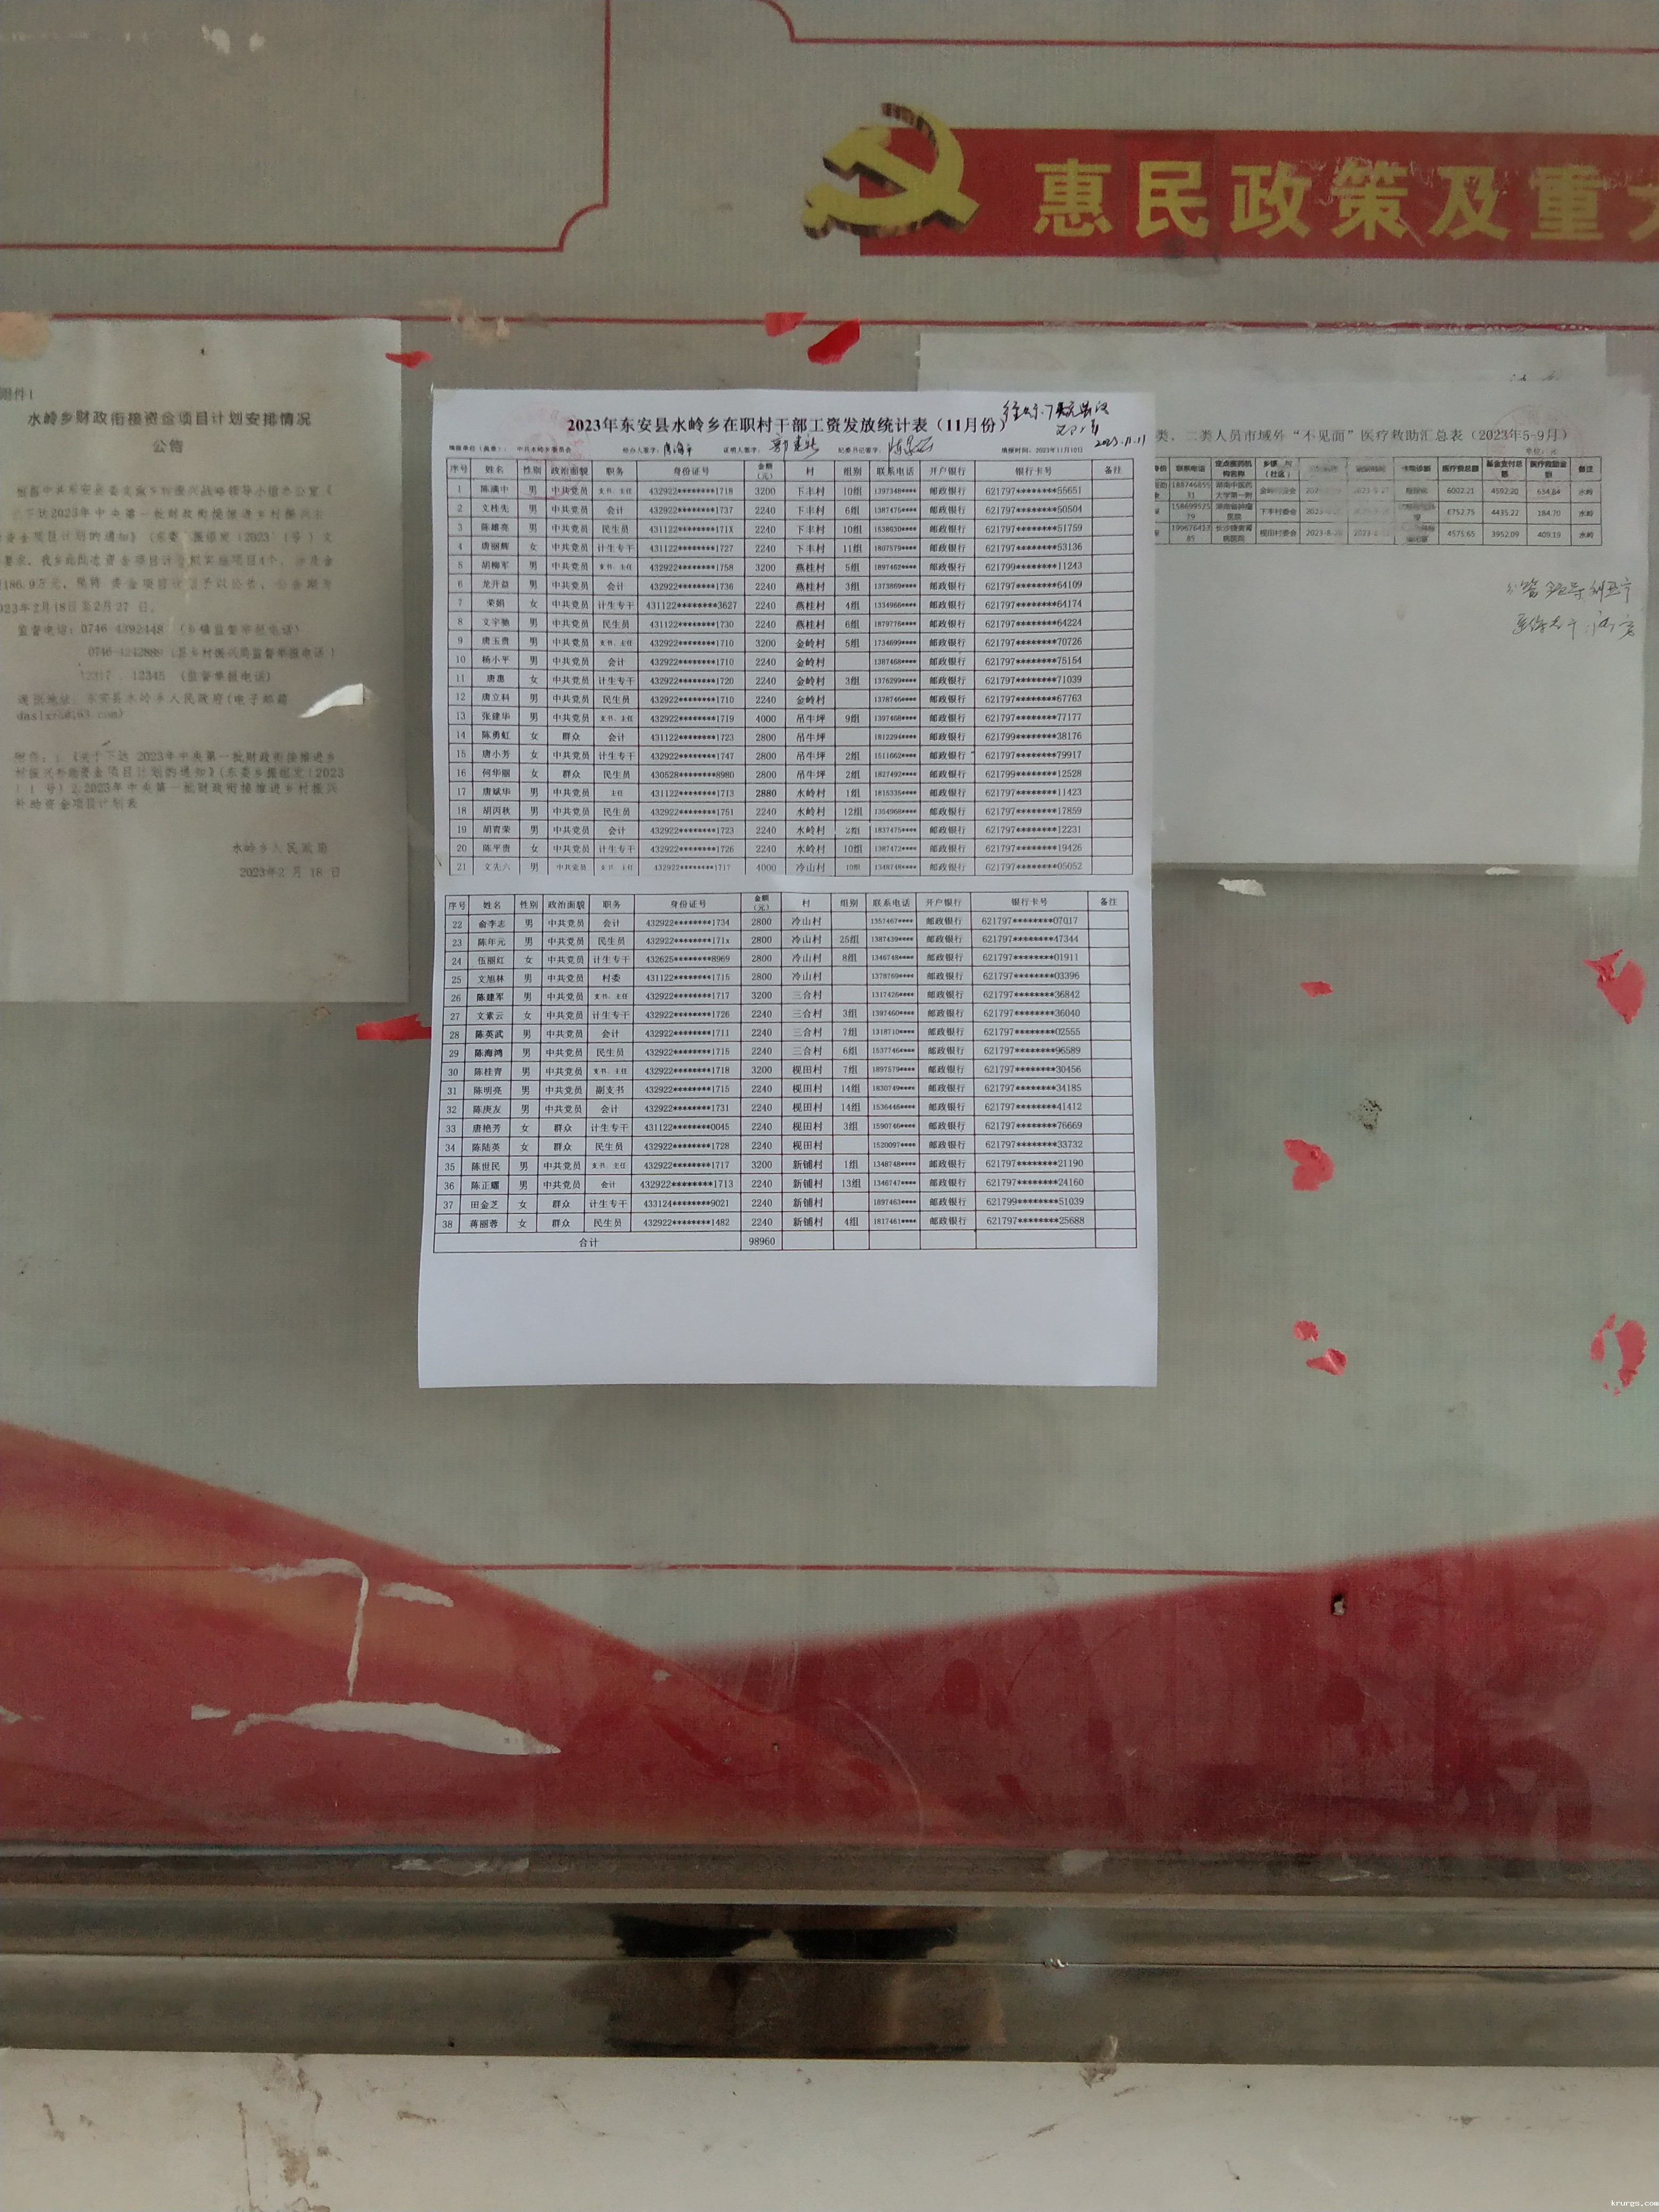 惠民政策及重
附件1
水岭乡财政衔接资金项目计划安排情况
公告
023年2月18日至2月27 日。
监督电话: 0746-4392448 (乡镇监督举报电话)
12345 (监督举报电话)
通讯地址: 东安县水岭乡人民政府(电子邮箱
附件: 1.《关于下达 2023年中央第一批财政衔接推进乡
村振兴补助资金项目计划的通知》(东委乡振组发〔2023
〕1 号) 2.2023年中央第一批财政衔接推进乡村振兴
补助资金项目计划表
水岭乡人民政府
2023年2 月 18 日
2023年东安县水岭乡在职村干部工资发放统计表（11月份）
2023.11.11
填报单位（盖章）： 中共水岭乡委员会 经办人签字： 证明人签字： 纪委书记签字： 填报时间：2023年11月10日
序号 姓名 性别 政治面貌 职务 身份证号 金额（元） 村 组别 联系电话 开户银行 银行卡号 备注
1 陈满中 男 中共党员 支书、主任 432922********1718 3200 下丰村 10组 1397348**** 邮政银行 621797********55651
2 文桂先 男 中共党员 会计 432922********1737 2240 下丰村 6组 1387475**** 邮政银行 621797********50504
3 陈雄亮 男 中共党员 民生员 431122********171X 2240 下丰村 10组 1538630**** 邮政银行 621797********51759
4 唐丽辉 女 中共党员 计生专干 431122********1727 2240 下丰村 11组 1807579**** 邮政银行 621797********53136
5 胡柳军 男 中共党员 支书、主任 432922********1758 3200 燕桂村 5组 1897462**** 邮政银行 621797********11243
6 龙开益 男 中共党员 会计 432922********1736 2240 燕桂村 3组 1373869**** 邮政银行 621797********64109
7 荣娟 女 中共党员 计生专干 431122********3627 2240 燕桂村 4组 1334966**** 邮政银行 621797********64174
8 文宇驰 男 中共党员 民生员 431122********1730 2240 燕桂村 6组 1879776**** 邮政银行 621797********64224
9 唐玉贵 男 中共党员 支书、主任 432922********1710 3200 金岭村 5组 1734699**** 邮政银行 621797********70726
10 杨小平 男 中共党员 会计 432922********1710 2240 金岭村 1387468**** 邮政银行 621797********75154
11 唐惠 女 中共党员 计生专干 432922********1720 2240 金岭村 3组 1376299**** 邮政银行 621797********71039
12 唐立科 男 中共党员 民生员 432922********1710 2240 金岭村 1378746**** 邮政银行 621797********67763
13 张建华 男 中共党员 支书、主任 432922********1719 4000 吊牛坪 9组 1397468**** 邮政银行 621797********77177
14 陈勇虹 女 群众 会计 431122********1723 2800 吊牛坪 1812294**** 邮政银行 621799********38176
15 唐小芳 女 中共党员 计生专干 432922********1747 2800 吊牛坪 2组 1511662**** 邮政银行 621797********79917
16 何华丽 女 群众 民生员 430528********8980 2800 吊牛坪 2组 1827492**** 邮政银行 621799********12528
17 唐斌华 男 中共党员 主任 431122********1713 2880 水岭村 1组 1815335**** 邮政银行 621797********11423
18 胡丙秋 男 中共党员 民生员 432922********1751 2240 水岭村 12组 1354968**** 邮政银行 621797********17859
19 胡青荣 男 中共党员 会计 432922********1723 2240 水岭村 2组 1837475**** 邮政银行 621797********12231
20 陈平贵 女 中共党员 计生专干 432922********1726 2240 水岭村 10组 1387472**** 邮政银行 621797********19426
21 文先六 男 中共党员 支书、主任 432922********1717 4000 冷山村 10组 1348748**** 邮政银行 621797********05052
序号 姓名 性别 政治面貌 职务 身份证号 金额（元） 村 组别 联系电话 开户银行 银行卡号 备注
22 俞李志 男 中共党员 会计 432922********1734 2800 冷山村 1357467**** 邮政银行 621797********07017
23 陈年元 男 中共党员 民生员 432922********171x 2800 冷山村 25组 1387439**** 邮政银行 621797********47344
24 伍丽红 女 中共党员 计生专干 432625********8969 2800 冷山村 8组 1346748**** 邮政银行 621797********01911
25 文旭林 男 中共党员 村委 431122********1715 2800 冷山村 1378769**** 邮政银行 621797********03396
26 陈建军 男 中共党员 支书、主任 432922********1717 3200 三合村 1317426**** 邮政银行 621797********36842
27 文素云 女 中共党员 计生专干 432922********1726 2240 三合村 3组 1397460**** 邮政银行 621797********36040
28 陈英武 男 中共党员 会计 432922********1711 2240 三合村 7组 1318710**** 邮政银行 621797********02555
29 陈海鸿 男 中共党员 民生员 432922********1715 2240 三合村 6组 1537746**** 邮政银行 621797********96589
30 陈桂青 男 中共党员 支书、主任 432922********1718 3200 枧田村 7组 1897579**** 邮政银行 621797********30456
31 陈明亮 男 中共党员 副支书 432922********1715 2240 枧田村 14组 1830749**** 邮政银行 621797********34185
32 陈庚友 男 中共党员 会计 432922********1731 2240 枧田村 14组 1536446**** 邮政银行 621797********41412
33 唐艳芳 女 群众 计生专干 431122********0045 2240 枧田村 3组 1590746**** 邮政银行 621797********76669
34 陈陆英 女 群众 民生员 432922********1728 2240 枧田村 1520097**** 邮政银行 621797********33732
35 陈世民 男 中共党员 支书、主任 432922********1717 3200 新铺村 1组 1348748**** 邮政银行 621797********21190
36 陈正耀 男 中共党员 会计 432922********1713 2240 新铺村 13组 1346747**** 邮政银行 621797********24160
37 田金芝 女 群众 计生专干 433124********9021 2240 新铺村 1897463**** 邮政银行 621799********51039
38 蒋丽蓉 女 群众 民生员 432922********1482 2240 新铺村 4组 1817461**** 邮政银行 621797********25688
合计 98960
类、二类人员市域外“不见面”医疗救助汇总表（2023年5-9月）
单位：元
联系电话 定点医药机构名称 医疗费总额 基金支付总额 医疗救助金额 备注
湖南中医药大学第一附 6002.21 4502.20 634.84 水岭
湖南省肿瘤医院 下丰村委会 6752.75 4435.22 184.70 水岭
枧田村委会 4575.65 3952.09 409.19 水岭
krurgs.com